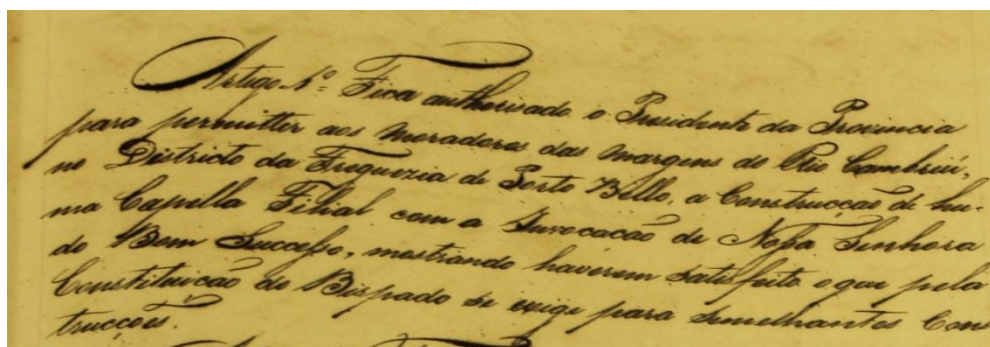 Artigo 1º Fica authorisado o Presidente da Provincia
para permittir aos moradores das margens do Rio Cambriú,
no Districto da Freguezia de Porto Bello, a Construcção de hu-
ma Capella Filial com a Invocacaõ de Nossa Senhora
do Bom Successo, mostrando haverem satisfeito o que pela
Constituicaõ do Bispado se exige para semelhantes Cons
trucções.